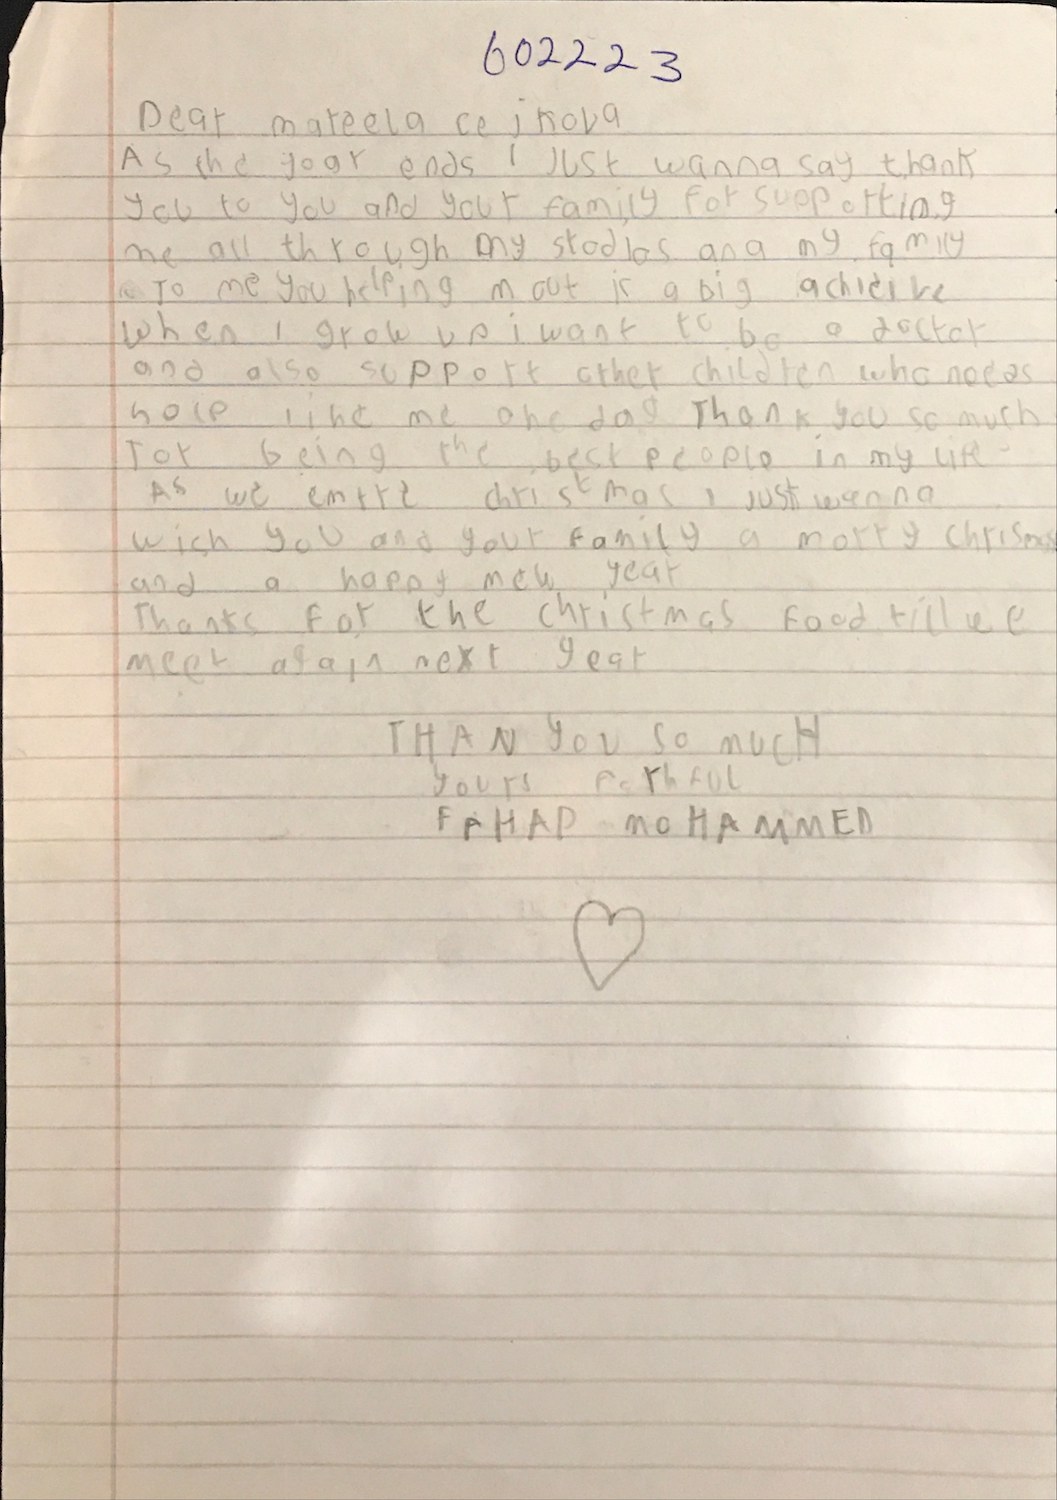 602223
Dear mareela cejkova
As the year ends I Just wanna say thank
you to you and your family for supporting
me all through my stodios and my family
To me you helping m out is a big achieive
when I grow up i want to be a doctor
and also support other children who needs
help like me one day Thank you so much
For being the best people in my life
As we entre christmas I Just wanna
wich you and your family a morry Chrismas
and a happy new year
Thanks For the christmas food till we
meet again next year
THAN YOU SO MUCH
yours Fathful
FAHAD MOHAMMED